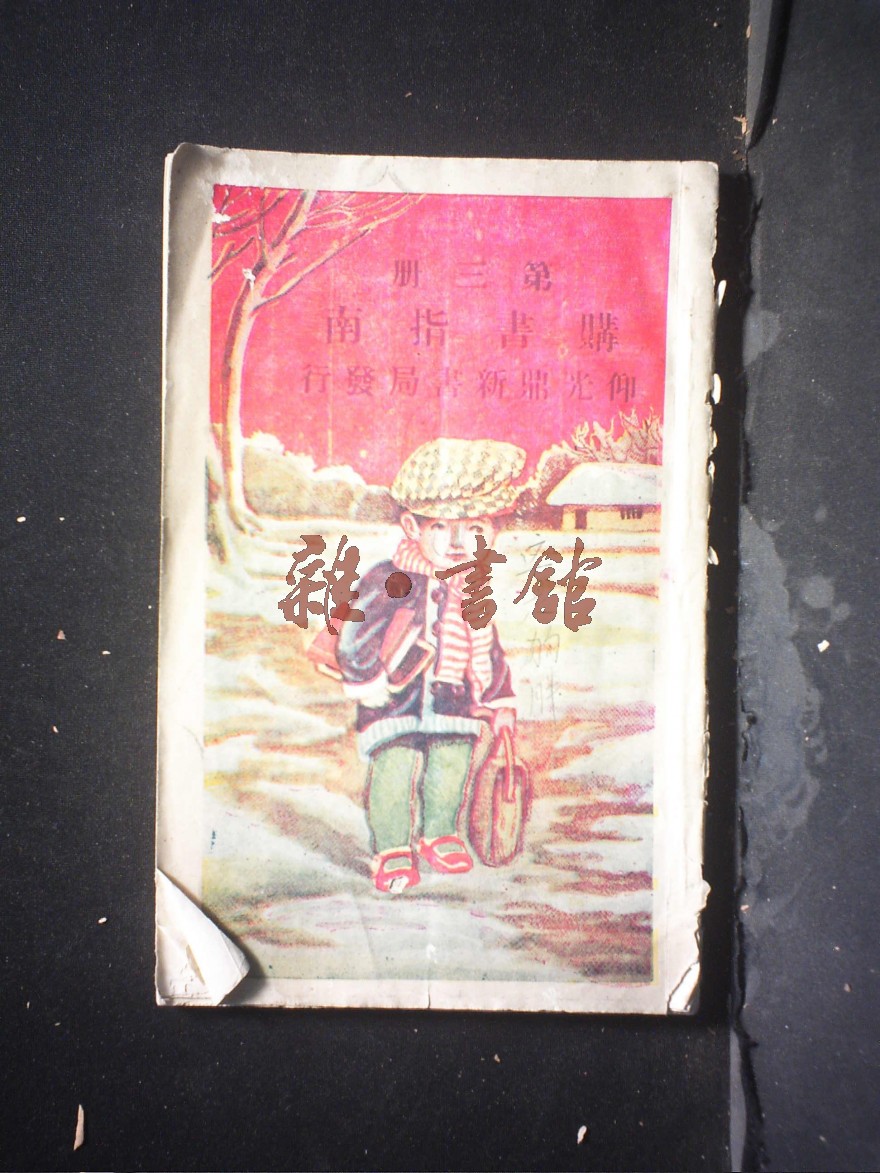 第三册
購書指南
仰光鼎新書局發行
雜·書館